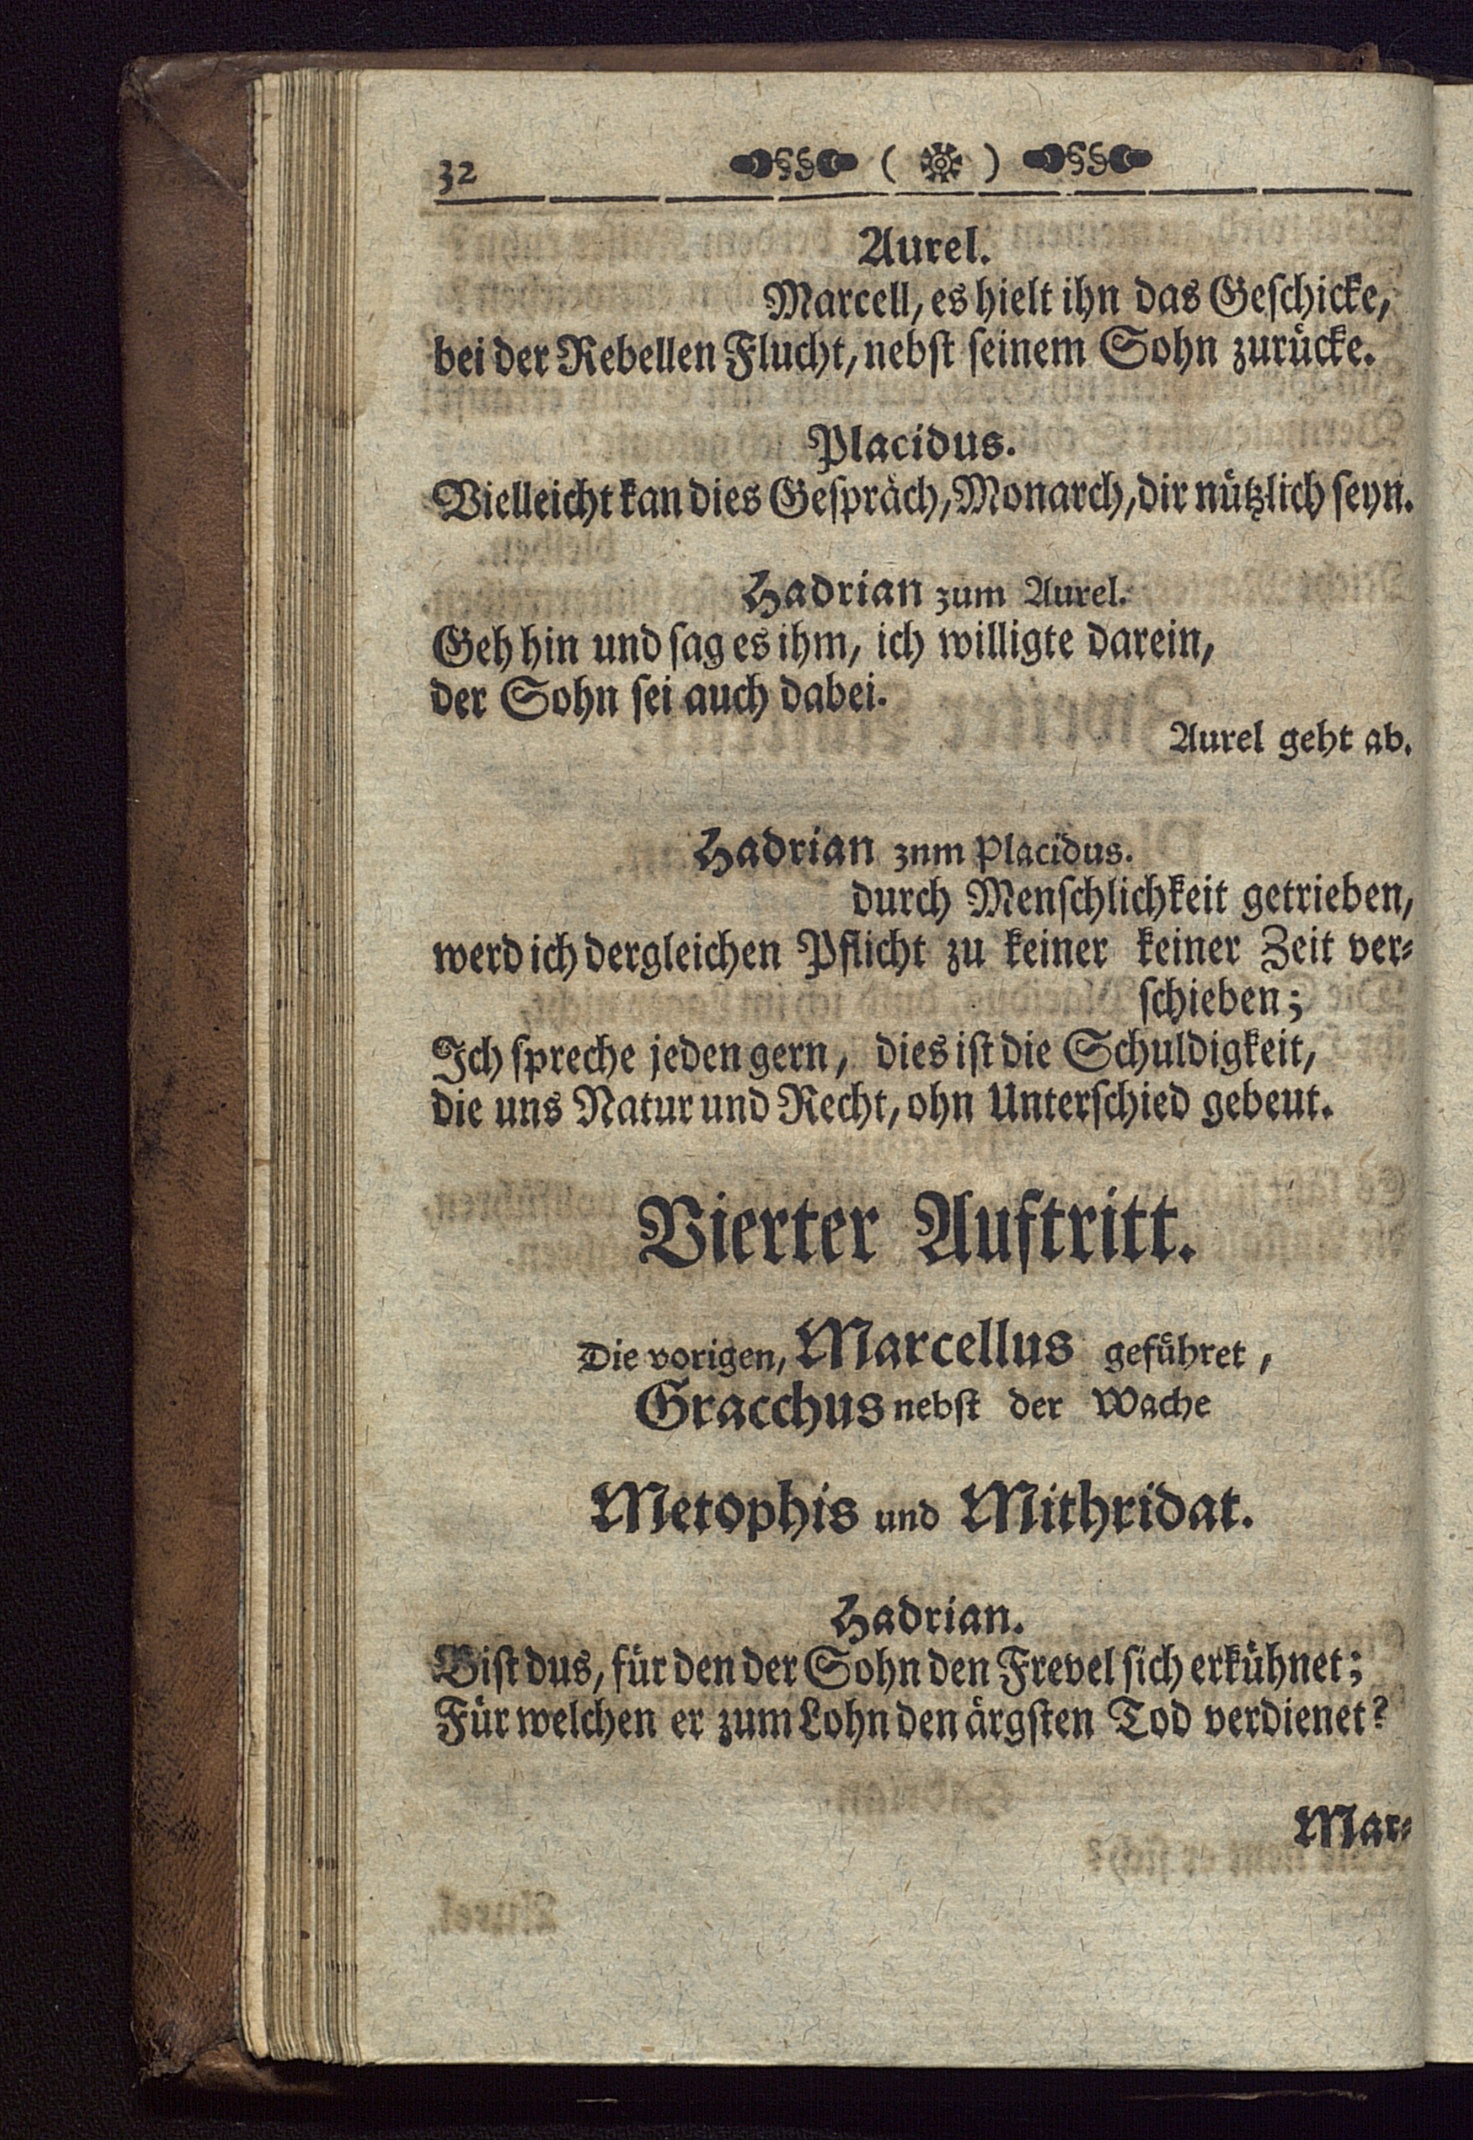 32 ( )
Aurel.
Marcell, es hielt ihn das Geschicke,
bei der Rebellen Flucht, nebst seinem Sohn zurücke.
Placidus.
Vielleicht kan dies Gespräch, Monarch, dir nützlich seyn.
Hadrian zum Aurel.
Geh hin und sag es ihm, ich willigte darein,
der Sohn sei auch dabei.
Aurel geht ab.
Hadrian znm Placidus.
durch Menschlichkeit getrieben,
werd ich dergleichen Pflicht zu keiner keiner Zeit ver-
schieben;
Ich spreche jeden gern, dies ist die Schuldigkeit,
die uns Natur und Recht, ohn Unterschied gebeut.
Vierter Auftritt.
Die vorigen, Marcellus geführet,
Gracchus nebst der Wache
Metophis und Mithridat.
Hadrian.
Bist dus, für den der Sohn den Frevel sich erkühnet;
Für welchen er zum Lohn den ärgsten Tod verdienet?
Mar-